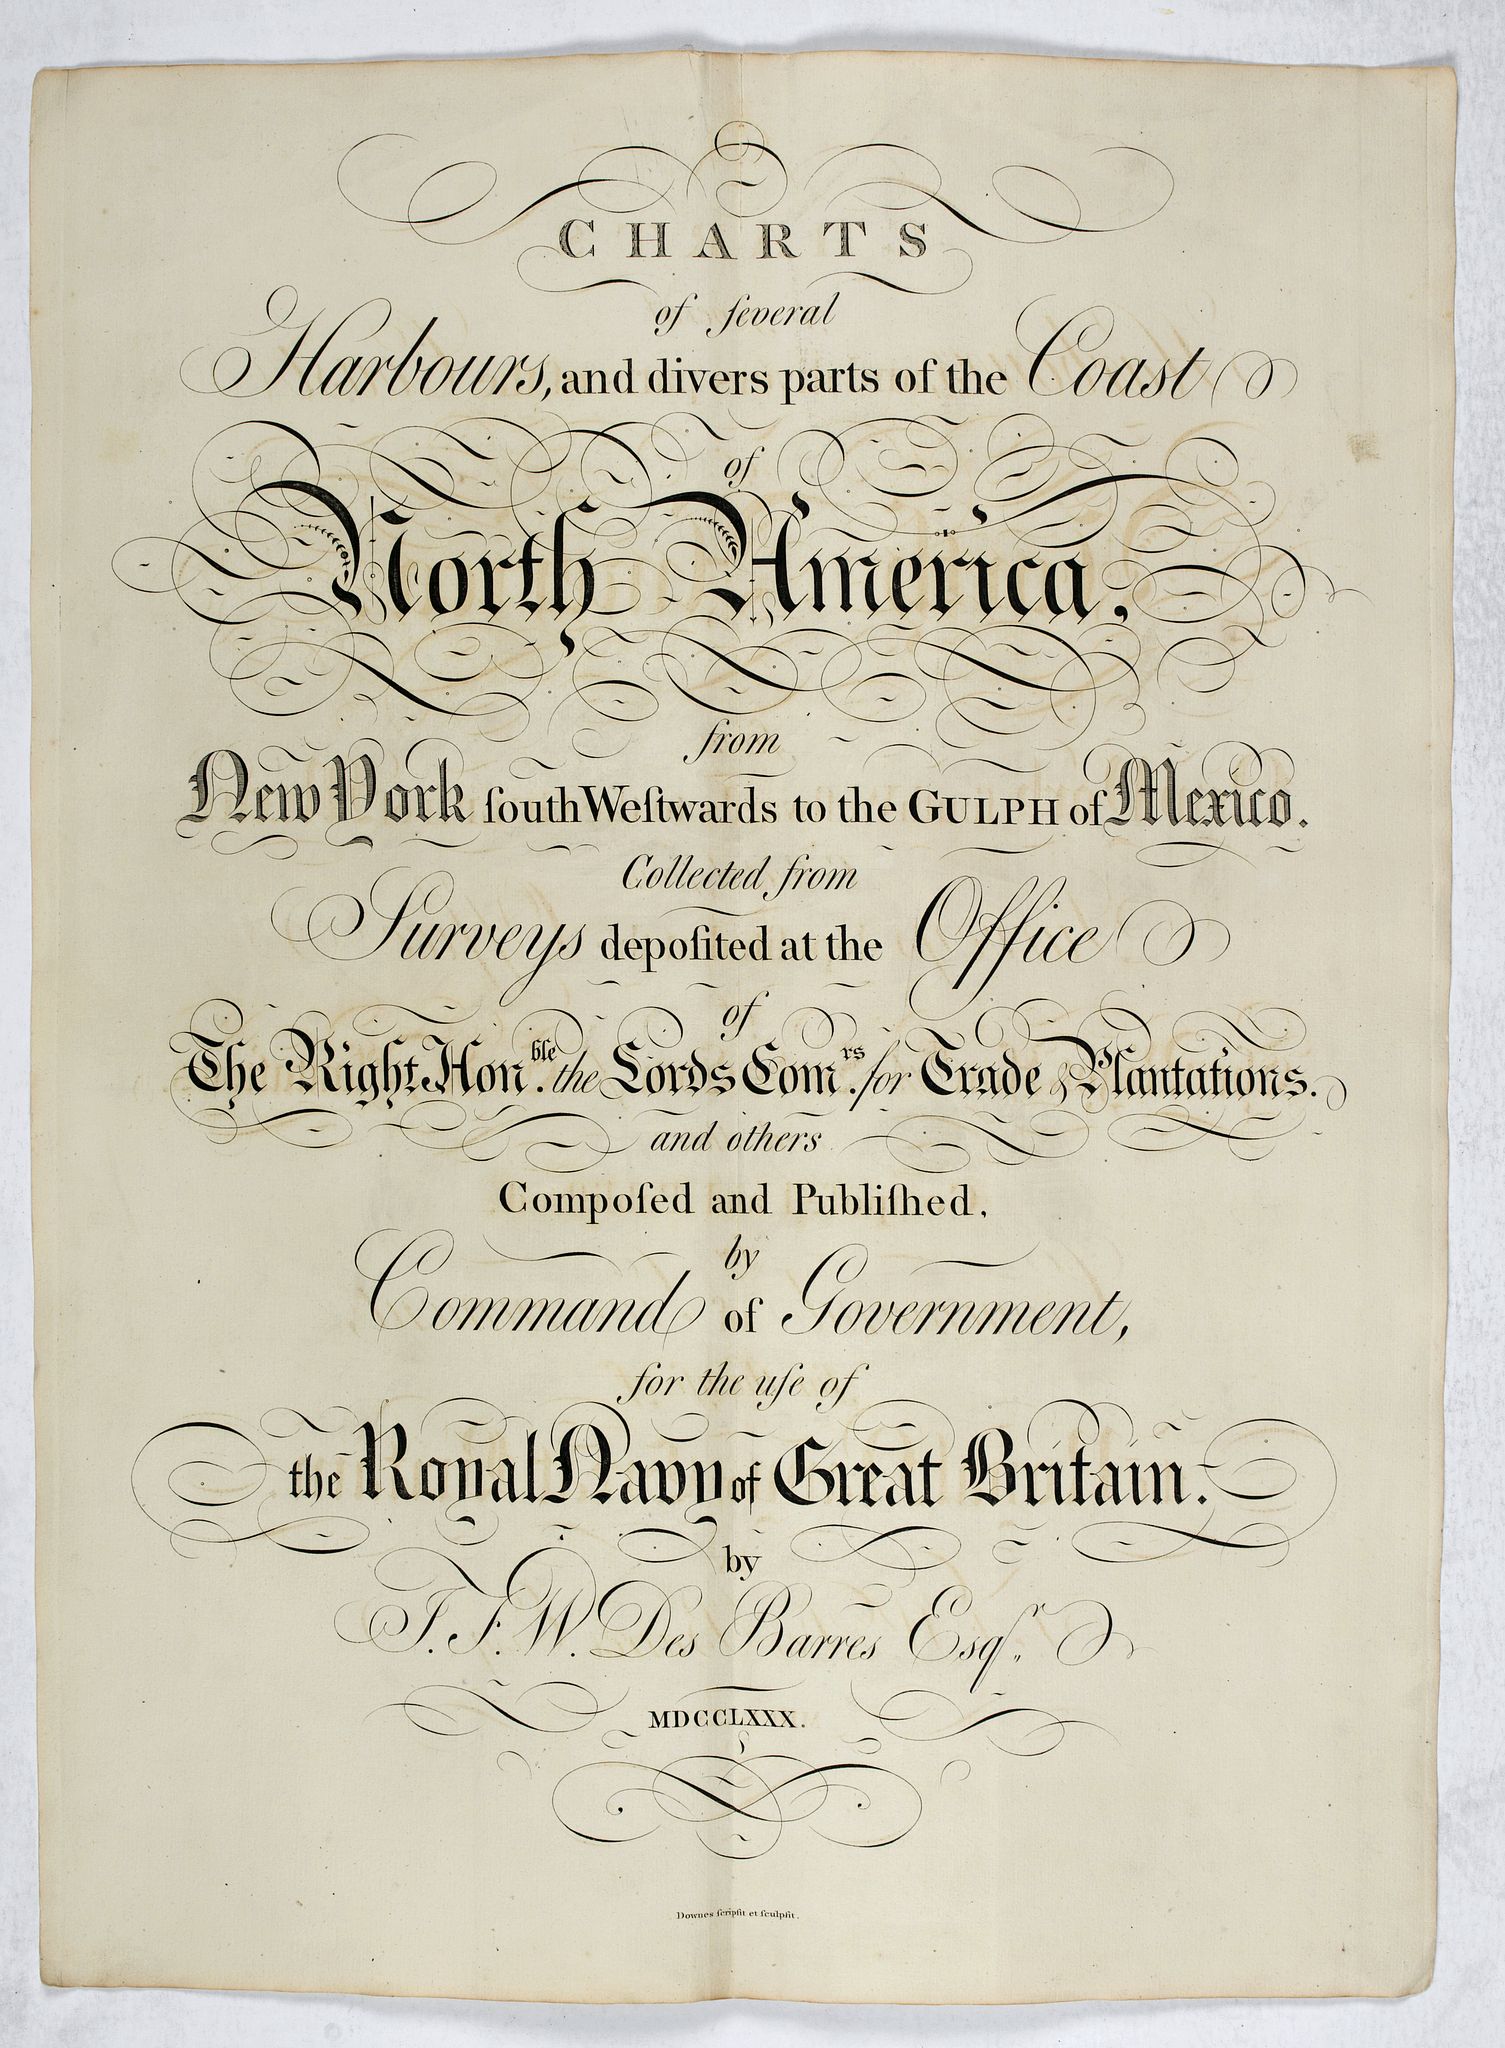 CHARTS
of ſeveral
Harbours, and divers parts of the Coast
of
North America,
from
New York ſouth Weſtwards to the GULPH of Mexico.
Collected from
Surveys depoſited at the Office
of
The Right Hon.ble the Lords Com.rs for Trade & Plantations.
and others
Compoſed and Publiſhed,
by
Command of Government,
for the uſe of
the Royal Navy of Great Britain.
by
J. F. W. Des Barres Esqr.
MDCCLXXX.
Downes ſcripſit et ſculpſit.